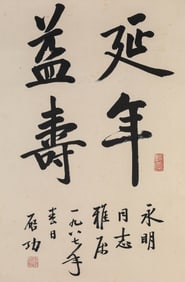 延年
益壽
永明
同志
雅屬
一九八七年
春日
启功